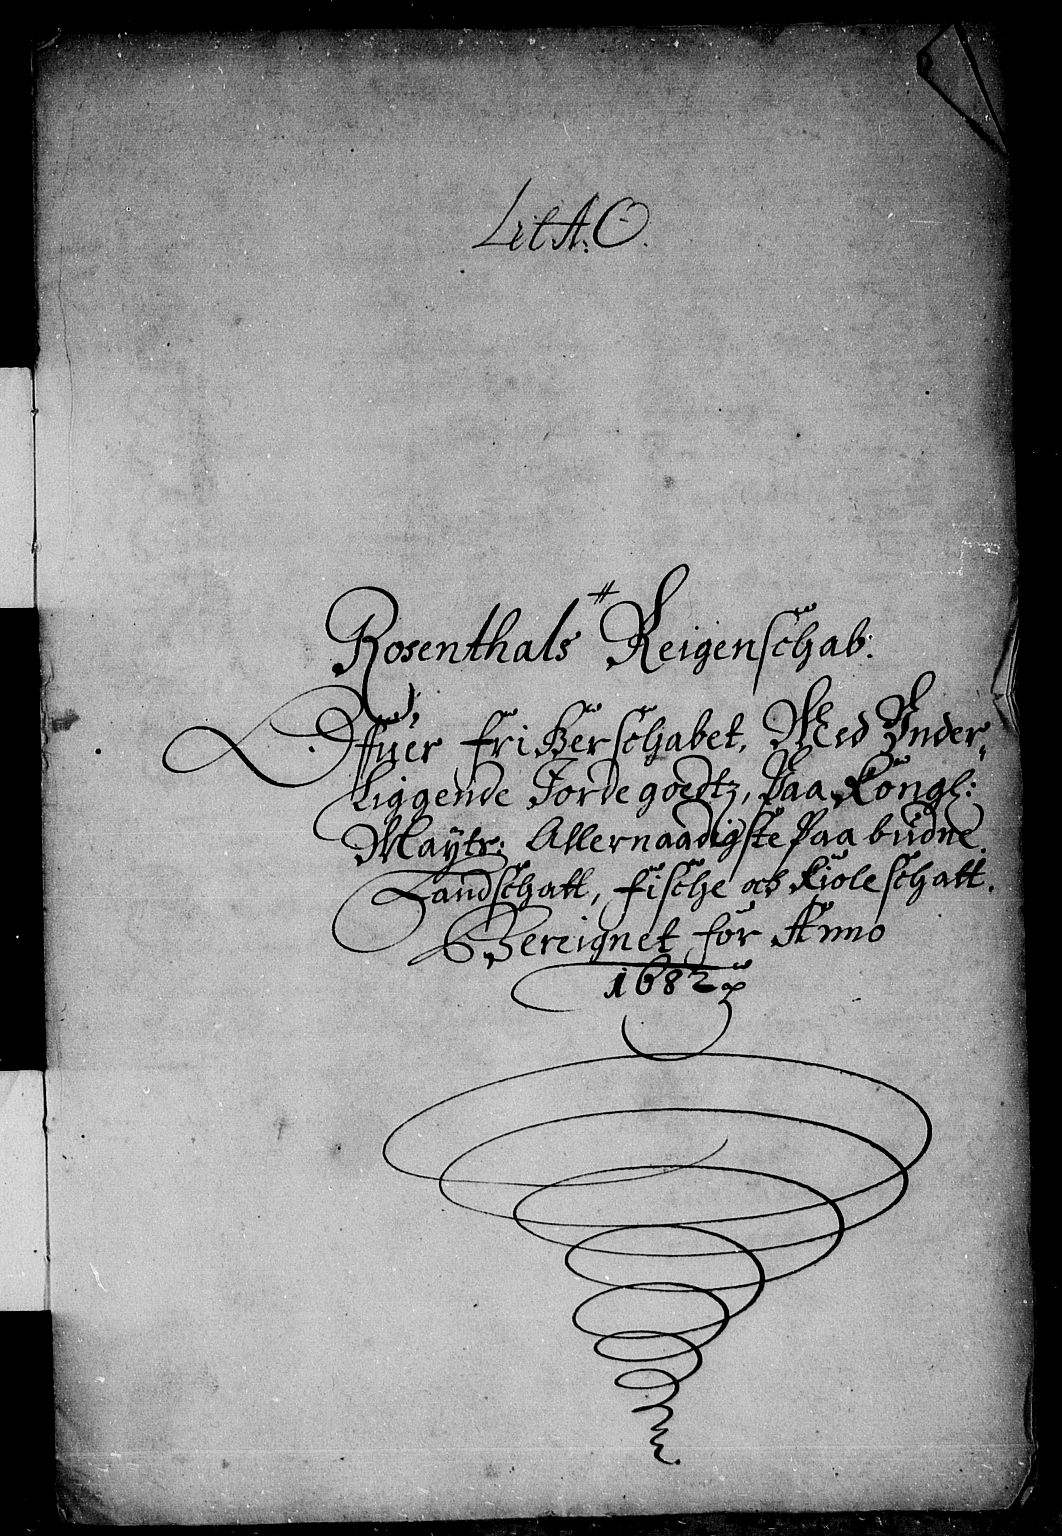 Lit A: O.
Rosenthals Reigenschab:
Offuer fri Herschabet, Med Inder-
liggende Jordegoedtz, Paa Kongl:
Maÿtz: Allernaadigste Paabudne
Landschatt, fische och Kioleschatt.
Bereignet for Anno
1682